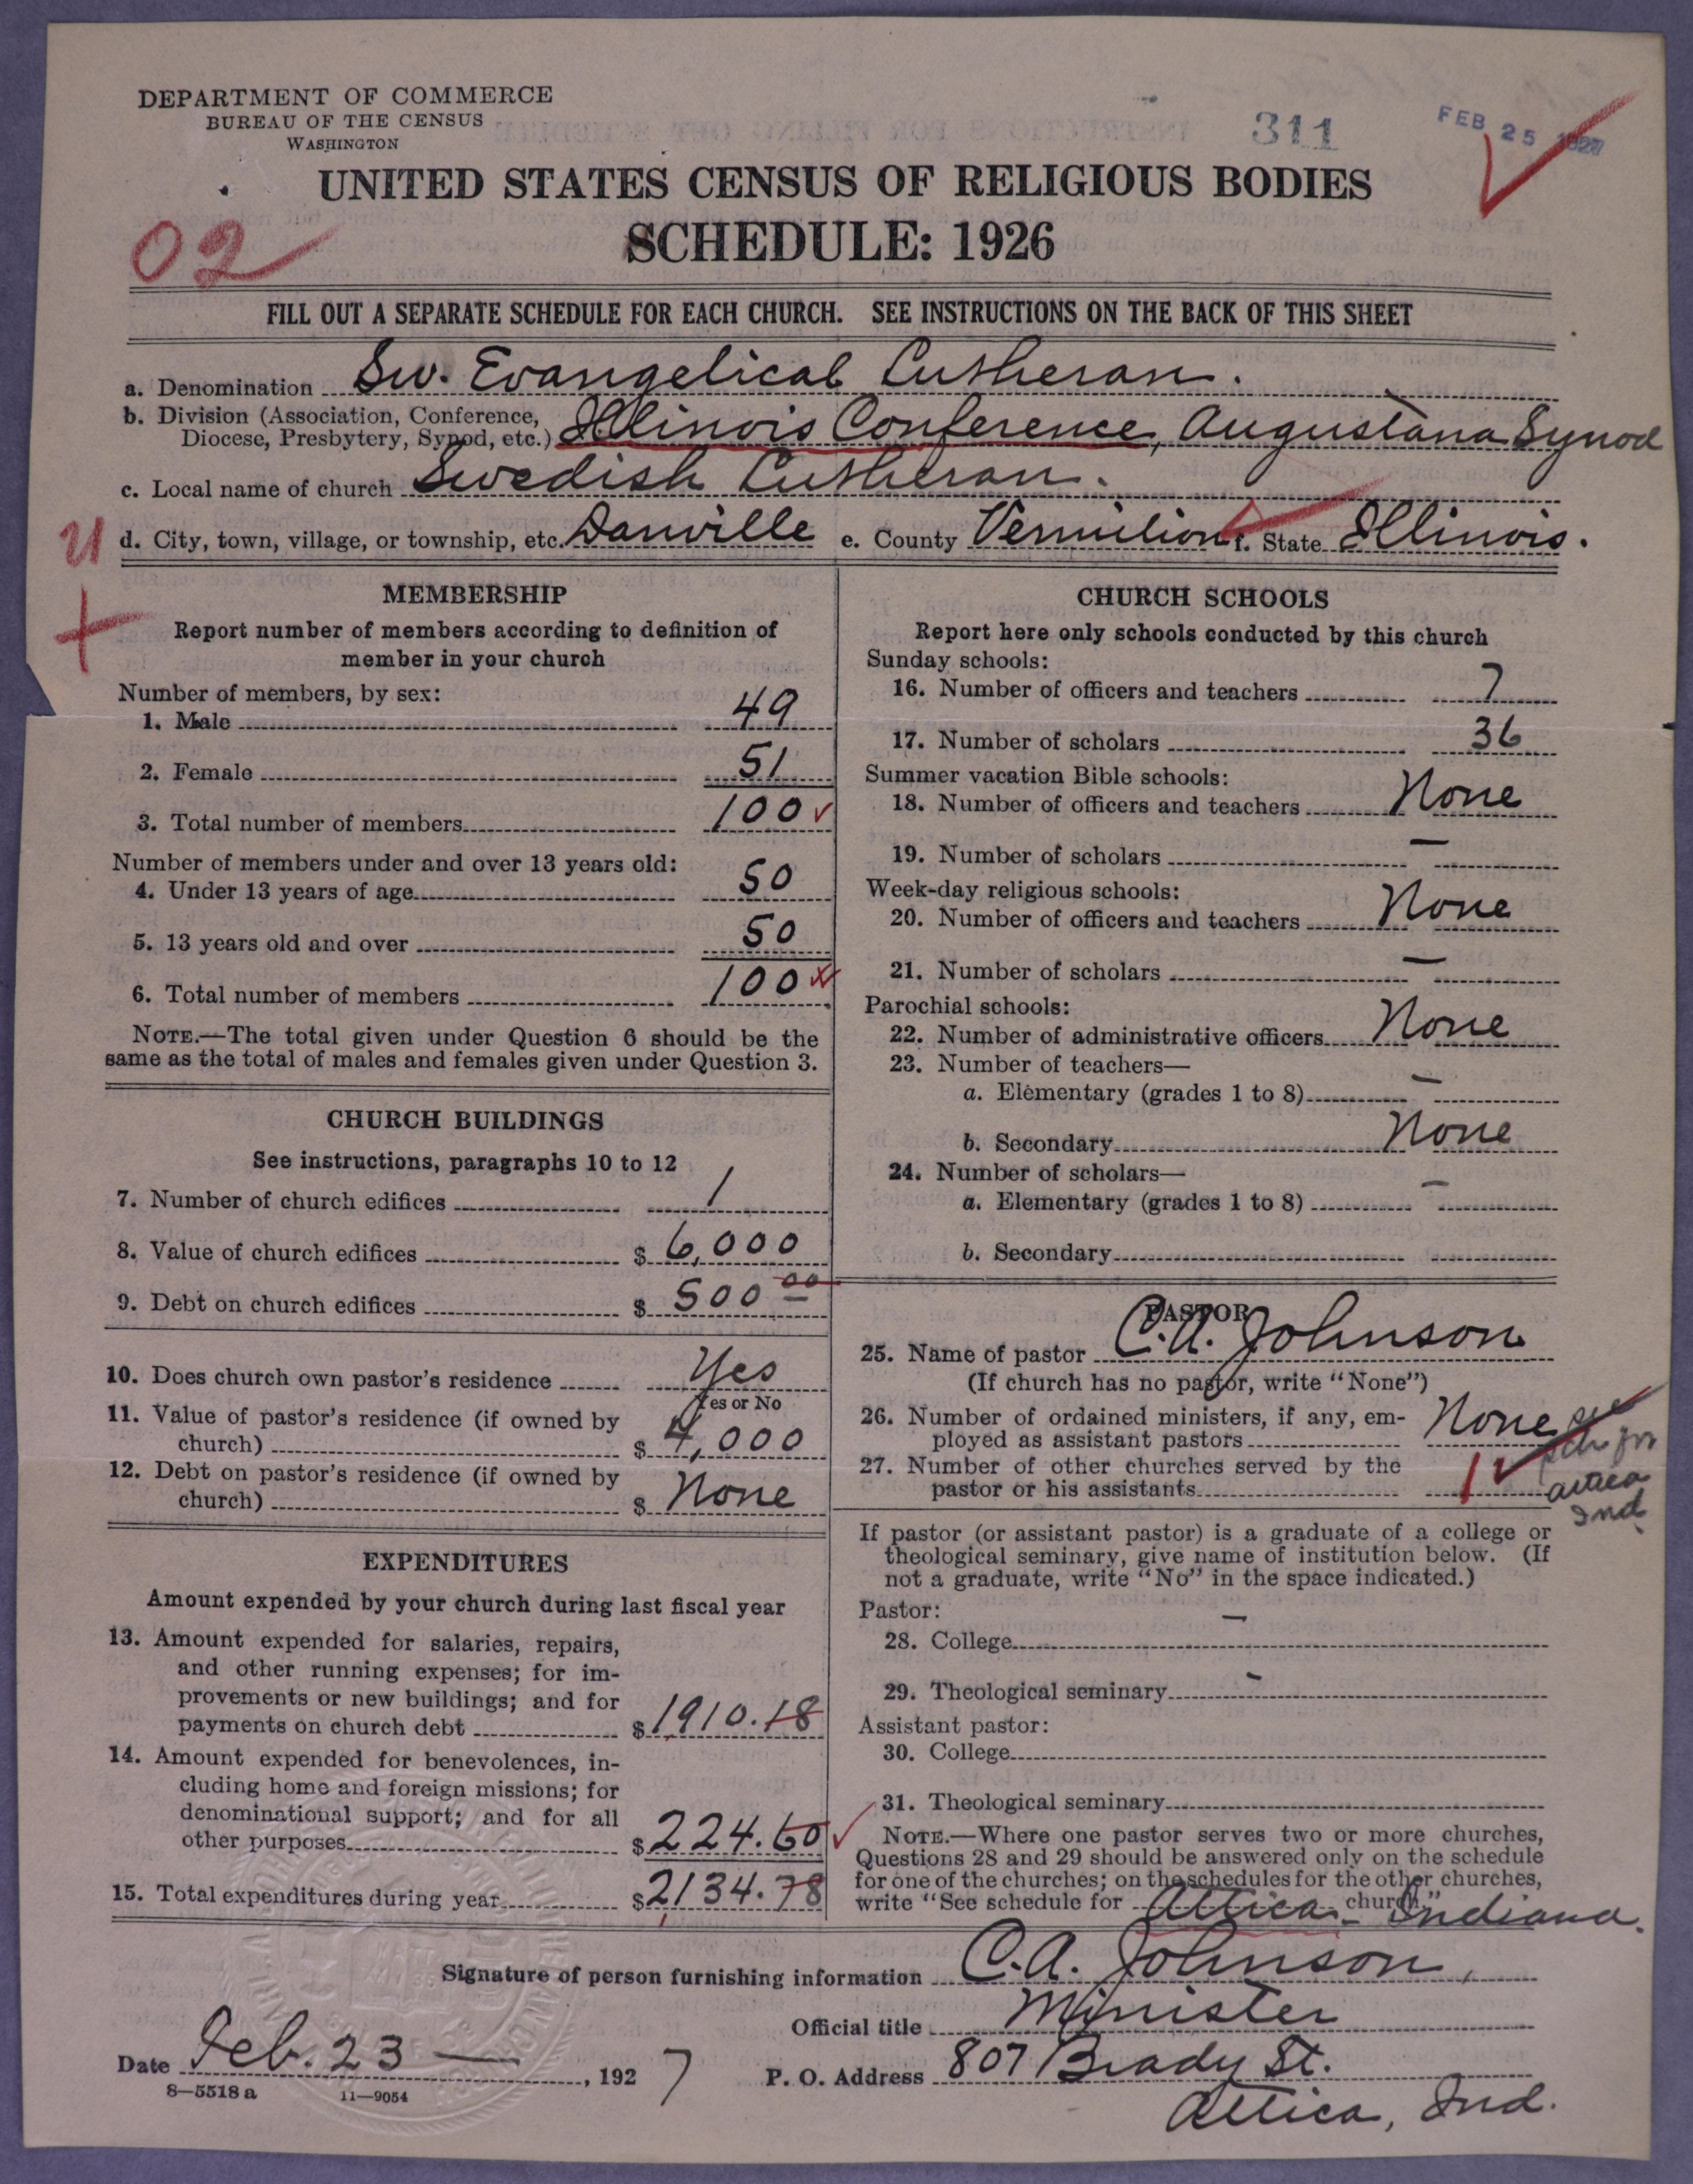 DEPARTMENT OF COMMERCE
BUREAU OF THE CENSUS
WASHINGTON
311
FEB 25 1927
UNITED STATES CENSUS OF RELIGIOUS BODIES
SCHEDULE: 1926
02
FILL OUT A SEPARATE SCHEDULE FOR EACH CHURCH. SEE INSTRUCTIONS ON THE BACK OF THIS SHEET
a. Denomination Sw. Evangelical Lutheran.
b. Division (Association, Conference,
Diocese, Presbytery, Synod, etc.) Illinois Conference, Augustana Synod
c. Local name of church Swedish Lutheran.
d. City, town, village, or township, etc. Danville e. County Vermilion f. State Illinois.
MEMBERSHIP
Report number of members according to definition of
member in your church
Number of members, by sex:
1. Male 49
2. Female 51
3. Total number of members 100
Number of members under and over 13 years old:
4. Under 13 years of age 50
5. 13 years old and over 50
6. Total number of members 100
NOTE.—The total given under Question 6 should be the
same as the total of males and females given under Question 3.
CHURCH BUILDINGS
See instructions, paragraphs 10 to 12
7. Number of church edifices 1
8. Value of church edifices $ 6,000
9. Debt on church edifices $ 500 00
10. Does church own pastor's residence Yes
Yes or No
11. Value of pastor's residence (if owned by
church) $ 4,000
12. Debt on pastor's residence (if owned by
church) $ None
EXPENDITURES
Amount expended by your church during last fiscal year
13. Amount expended for salaries, repairs,
and other running expenses; for im-
provements or new buildings; and for
payments on church debt $ 1910.18
14. Amount expended for benevolences, in-
cluding home and foreign missions; for
denominational support; and for all
other purposes $ 224.60
15. Total expenditures during year $ 2134.78
CHURCH SCHOOLS
Report here only schools conducted by this church
Sunday schools:
16. Number of officers and teachers 7
17. Number of scholars 36
Summer vacation Bible schools:
18. Number of officers and teachers None
19. Number of scholars —
Week-day religious schools:
20. Number of officers and teachers None
21. Number of scholars —
Parochial schools:
22. Number of administrative officers None
23. Number of teachers—
a. Elementary (grades 1 to 8) —
b. Secondary None
24. Number of scholars—
a. Elementary (grades 1 to 8) —
b. Secondary
PASTOR
25. Name of pastor C.A. Johnson
(If church has no pastor, write "None")
26. Number of ordained ministers, if any, em-
ployed as assistant pastors None
27. Number of other churches served by the
pastor or his assistants 1
see
sch for
Attica
Ind
If pastor (or assistant pastor) is a graduate of a college or
theological seminary, give name of institution below. (If
not a graduate, write "No" in the space indicated.)
Pastor:
28. College —
29. Theological seminary -
Assistant pastor:
30. College
31. Theological seminary
NOTE.—Where one pastor serves two or more churches,
Questions 28 and 29 should be answered only on the schedule
for one of the churches; on the schedules for the other churches,
write "See schedule for Attica - Indiana. church."
Signature of person furnishing information C.A. Johnson,
Official title Minister
Date Feb. 23 —, 1927
P. O. Address 807 Brady St.
Attica, Ind.
8—5518 a 11—9054